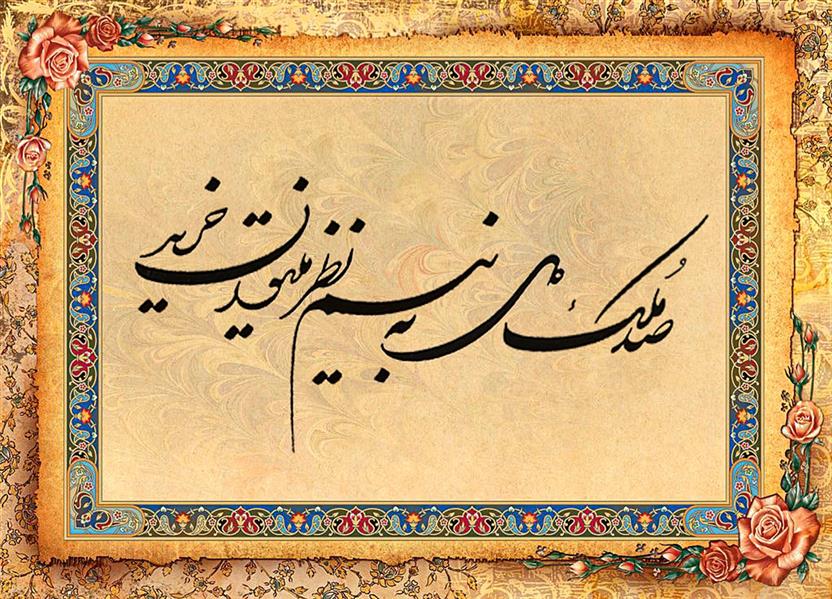 صد ملک دل به نیم نظر میتوان خرید